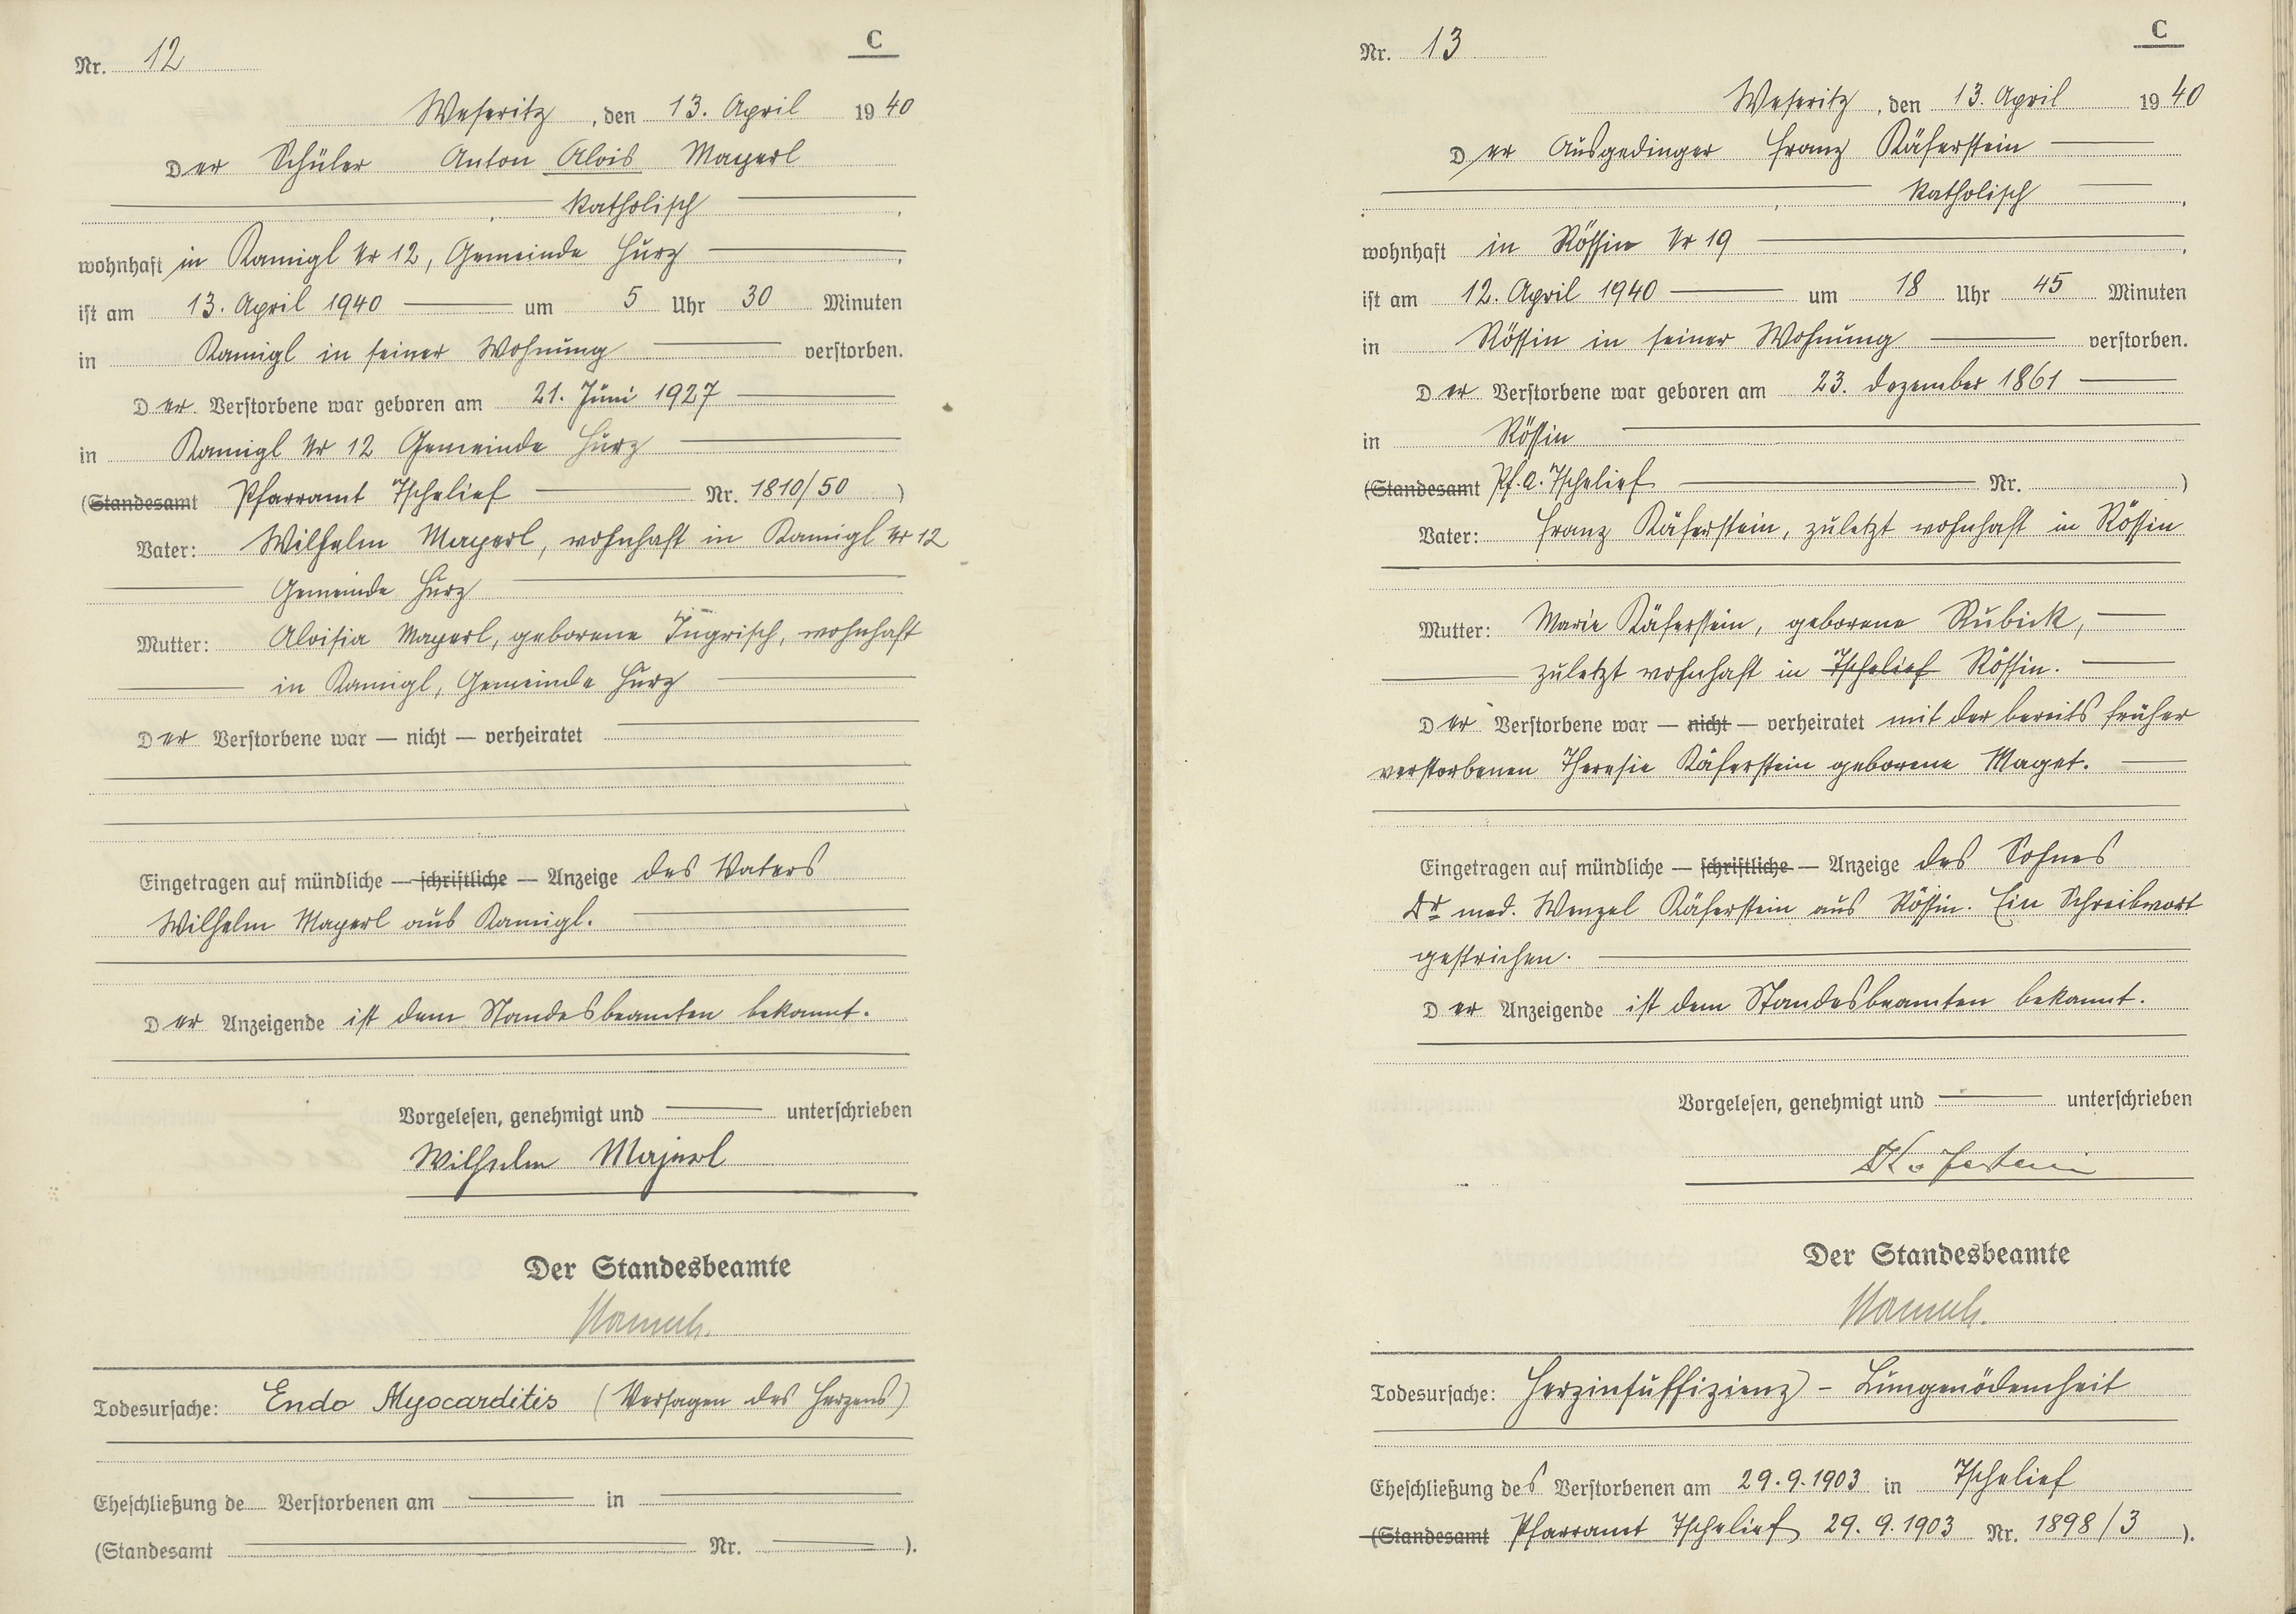 C
Nr. 12
Weseritz, den 13. April 1940
Der Schüler Anton Alois Mayerl
katholisch
wohnhaft in Kamigl Nr 12, Gemeinde Hurz
ist am 13. April 1940 um 5 Uhr 30 Minuten
in Kamigl in seiner Wohnung verstorben.
Der Verstorbene war geboren am 21. Juni 1927
in Kamigl Nr 12 Gemeinde Hurz
(Standesamt Pfarramt Tschelief Nr. 1810/50)
Vater: Wilhelm Mayerl, wohnhaft in Kamigl Nr 12
Gemeinde Hurz
Mutter: Aloisia Mayerl, geborene Ingrisch, wohnhaft
in Kamigl, Gemeinde Hurz
Der Verstorbene war — nicht — verheiratet
Eingetragen auf mündliche — schriftliche — Anzeige des Vaters
Wilhelm Mayerl aus Kamigl.
Der Anzeigende ist dem Standesbeamten bekannt.
Vorgelesen, genehmigt und unterschrieben
Wilhelm Majerl
Der Standesbeamte
Todesursache: Endo Myocarditis (Versagen des Herzens)
Eheschließung de Verstorbenen am in
(Standesamt Nr. ).
C
Nr. 13
Weseritz, den 13. April 1940
Der Ausgedinger Franz Käferstein
katholisch
wohnhaft in Rössin Nr 19
ist am 12. April 1940 um 18 Uhr 45 Minuten
in Rössin in seiner Wohnung verstorben.
Der Verstorbene war geboren am 23. Dezember 1861
in Rössin
(Standesamt Pf. A. Tschelief Nr. )
Vater: Franz Käferstein, zuletzt wohnhaft in Rössin
Mutter: Marie Käferstein, geborene Rubick,
zuletzt wohnhaft in Tschelief Rössin.
Der Verstorbene war — nicht — verheiratet mit der bereits früher
verstorbenen Theresie Käferstein geborene Maget.
Eingetragen auf mündliche — schriftliche — Anzeige des Sohnes
Dr med. Wenzel Käferstein aus Rössin. Ein Schreibwort
gestrichen.
Der Anzeigende ist dem Standesbeamten bekannt.
Vorgelesen, genehmigt und unterschrieben
Der Standesbeamte
Todesursache: Herzinsuffizienz - Lungenödemheit
Eheschließung des Verstorbenen am 29.9.1903 in Tschelief
(Standesamt Pfarramt Tschelief 29.9.1903 Nr. 1898/3 ).